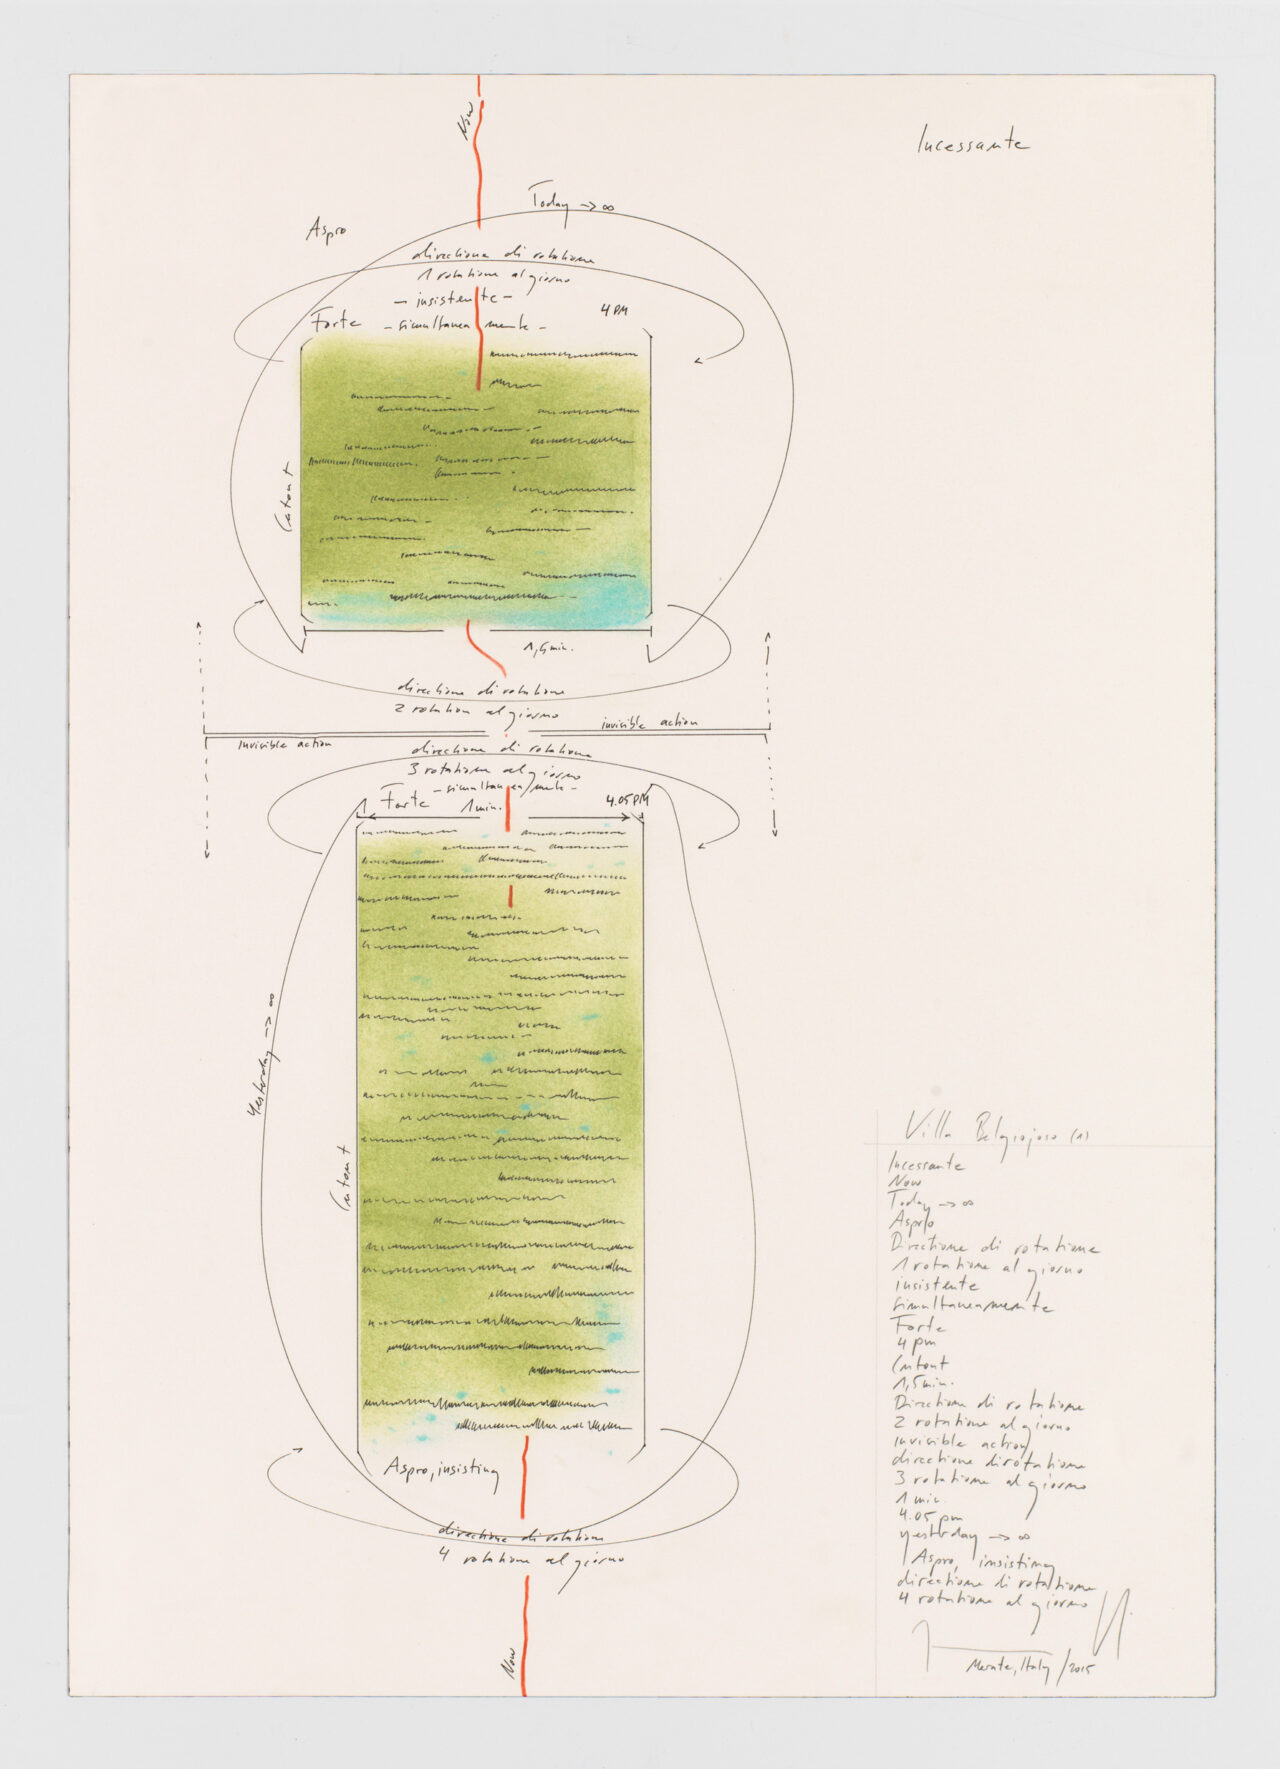 Now
Incessante
Today → ∞
Aspro
directione di rotatione
1 rotatione al giorno
- insistente -
4 PM
Forte - simultaneamente -
Cutout
1,5 min.
directione di rotatione
2 rotation al giorno
invisible action
invisible action
directione di rotatione
3 rotatione al giorno
- simultaneamente -
Forte 1 min. 4.05 PM
Yesterday → ∞
Cutout
Aspro, insisting
directione di rotatione
4 rotatione al giorno
Now
Villa Belgiojoso (1)
Incessante
Now
Today → ∞
Aspro
Directione di rotatione
1 rotatione al giorno
insistente
simultaneamente
Forte
4 pm
Cutout
1,5 min.
Directione di rotatione
2 rotatione al giorno
invisible action
directione di rotatione
3 rotatione al giorno
1 min.
4.05 pm
yesterday → ∞
Aspro, insisting
directione di rotatione
4 rotatione al giorno
Merate, Italy / 2015